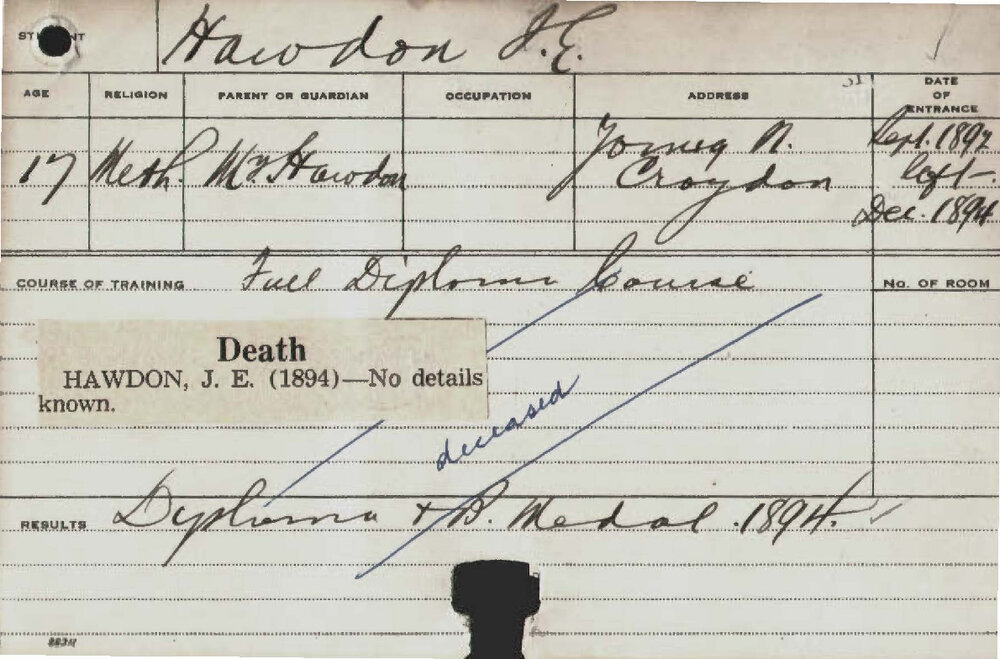 STUDENT Hawdon J. E.
AGE RELIGION PARENT OR GUARDIAN OCCUPATION ADDRESS DATE OF ENTRANCE
17 Meth. Mr. Hawdon N. Croydon Sept. 1892
left –
Dec. 1894
COURSE OF TRAINING Full Diploma Course
No. OF ROOM
Death
HAWDON, J. E. (1894)—No details
known.
deceased
RESULTS Diploma & B. Medal. 1894.